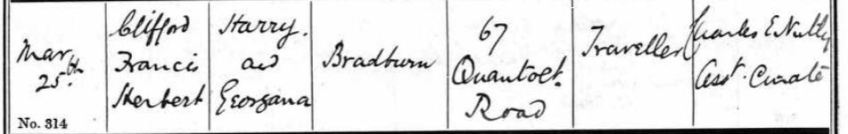 Mar
25th
No. 314
Clifford
Francis
Herbert
Harry
and
Georgana
Bradburn
67
Quantock
Road
Traveller
Charles E Nutley
Asst. Curate